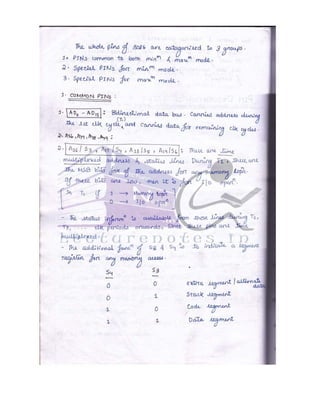 The whole pins of 8086 are categorised in 3 groups.
1. PINs common to both minm & maxm mode.
2. Special PINs for minm mode.
3. Special PINs for maxm mode.
1. COMMON PINS :
1. AD0 - AD15 : Bidirectional data bus. Carries address during
the 1st clk cycle (T1) and carries data for remaining clk cycles
2. A16, A17, A18, A19 :
2. A16/S3, A17/S4, A18/S5, A19/S6 : These are time
multiplexed address & status lines. During T1, these are
the MSB bits of the address for any memory opn.
If these bits are low, then it is for I/O opn.
So T1 if 1 → memory opn
0 → I/O opn
- The status inform is available from these lines during T2,
T3, ... clk periods onwards, that these pins are time
multiplexed.
Lecturenotes.in
- The additional funn of S3 & S4 is to indicate a segment
register for any memory access
S4 S3
0 0 extra segment / alternate data
0 1 Stack segment
1 0 Code segment
1 1 Data segment